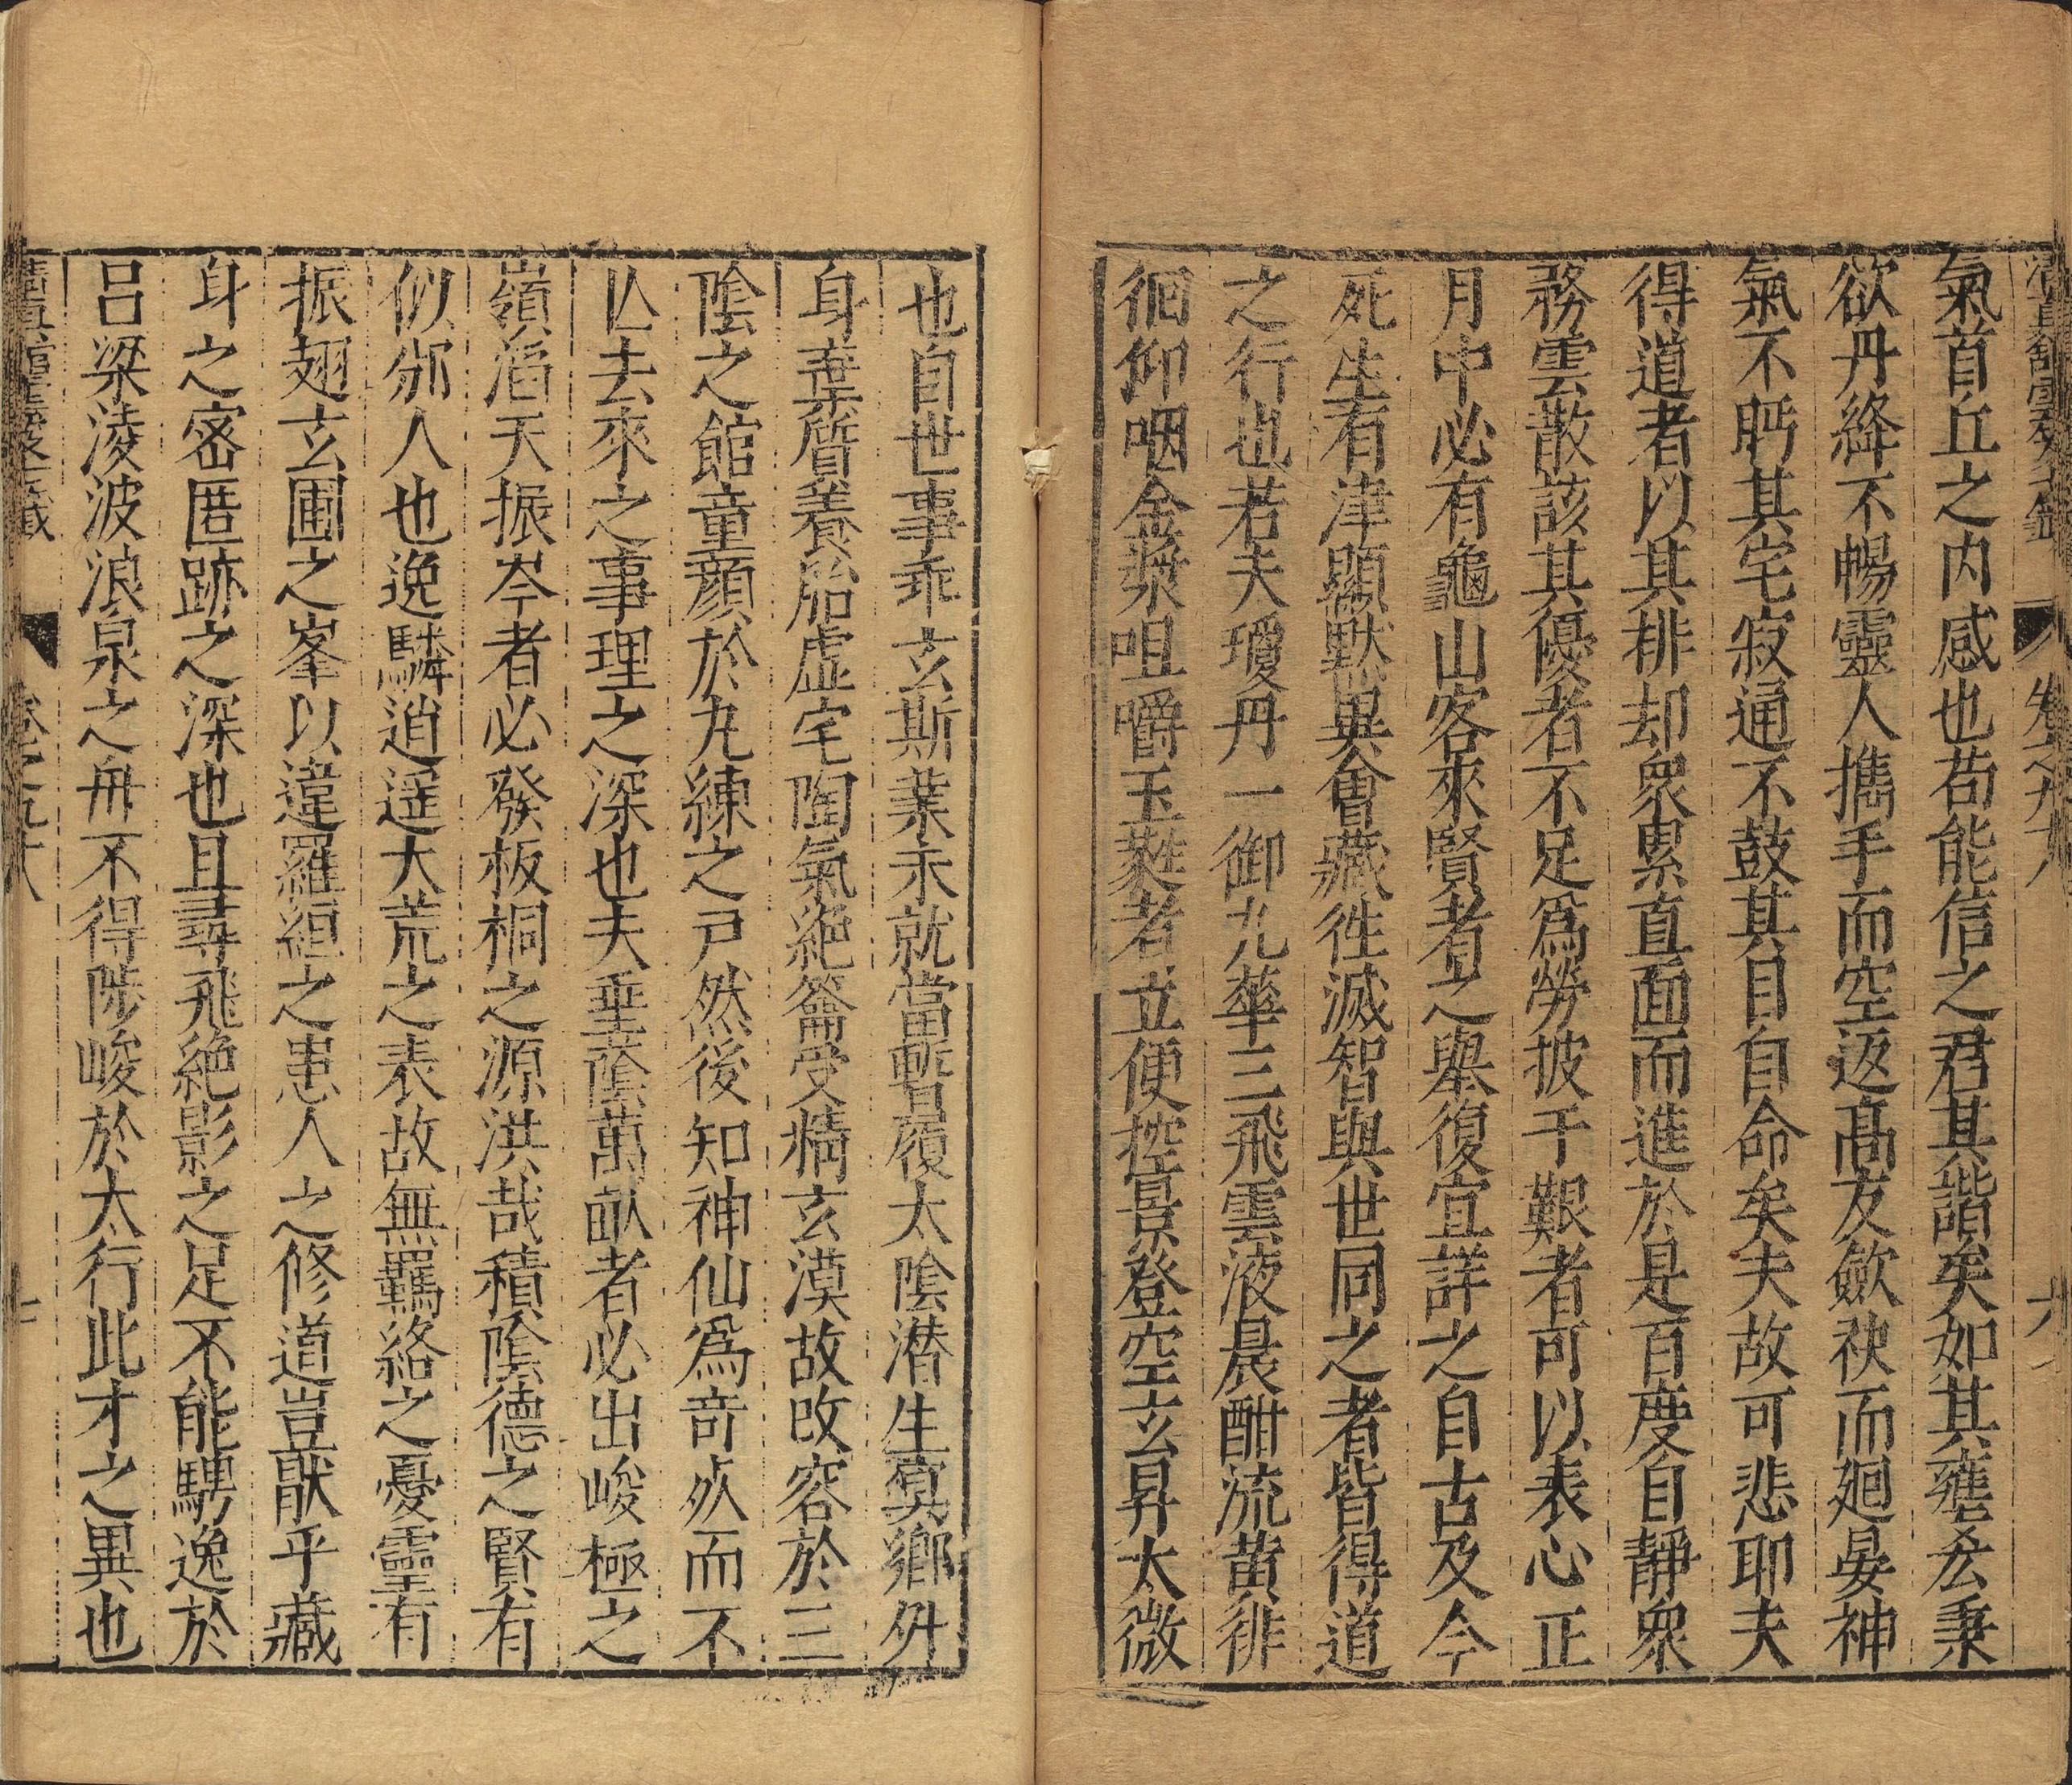 清眞館雲笈七籤　卷之九十八　六
氣首丘之内感也苟能信之君其諧矣如其壅玄秉
欲丹絳不暢靈人擕手而空返髙友斂袂而廻晏神
氣不眄其宅寂通不鼓其目自命矣夫故可悲耶夫
得道者以其排却衆累直面而進於是百度自靜衆
務雲散該其優者不足爲勞披干艱者可以表心正
月中必有龜山客來賢者之舉復宜詳之自古及今
死生有津顯默異會藏徃滅智與世同之者皆得道
之行也若夫瓊丹一御九華三飛雲液晨酣流黄徘
徊仰咽金漿咀嚼玉蕤者立便控景登空玄昇太微
也自世事乖玄斯業未就當暫履太陰潜生寘鄉外
身棄質養胎虚宅陶氣絶籥受精玄漠故改容於三
陰之館童顔於九練之戸然後知神仙爲奇㱙而不
亾去來之事理之深也夫垂蔭萬畝者必出峻極之
嶺滔天振岑者必發板桐之源洪哉積陰德之賢有
似邠人也逸驎逍遥大荒之表故無羈絡之憂靈有
振翅玄圃之峯以違羅䋄之患人之修道豈猒乎藏
身之宻匿跡之深也且尋飛絶影之足不能騁逸於
吕梁淩波浪泉之舟不得陟峻於太行此才之異也
清眞館雲笈七籤　卷之九十八